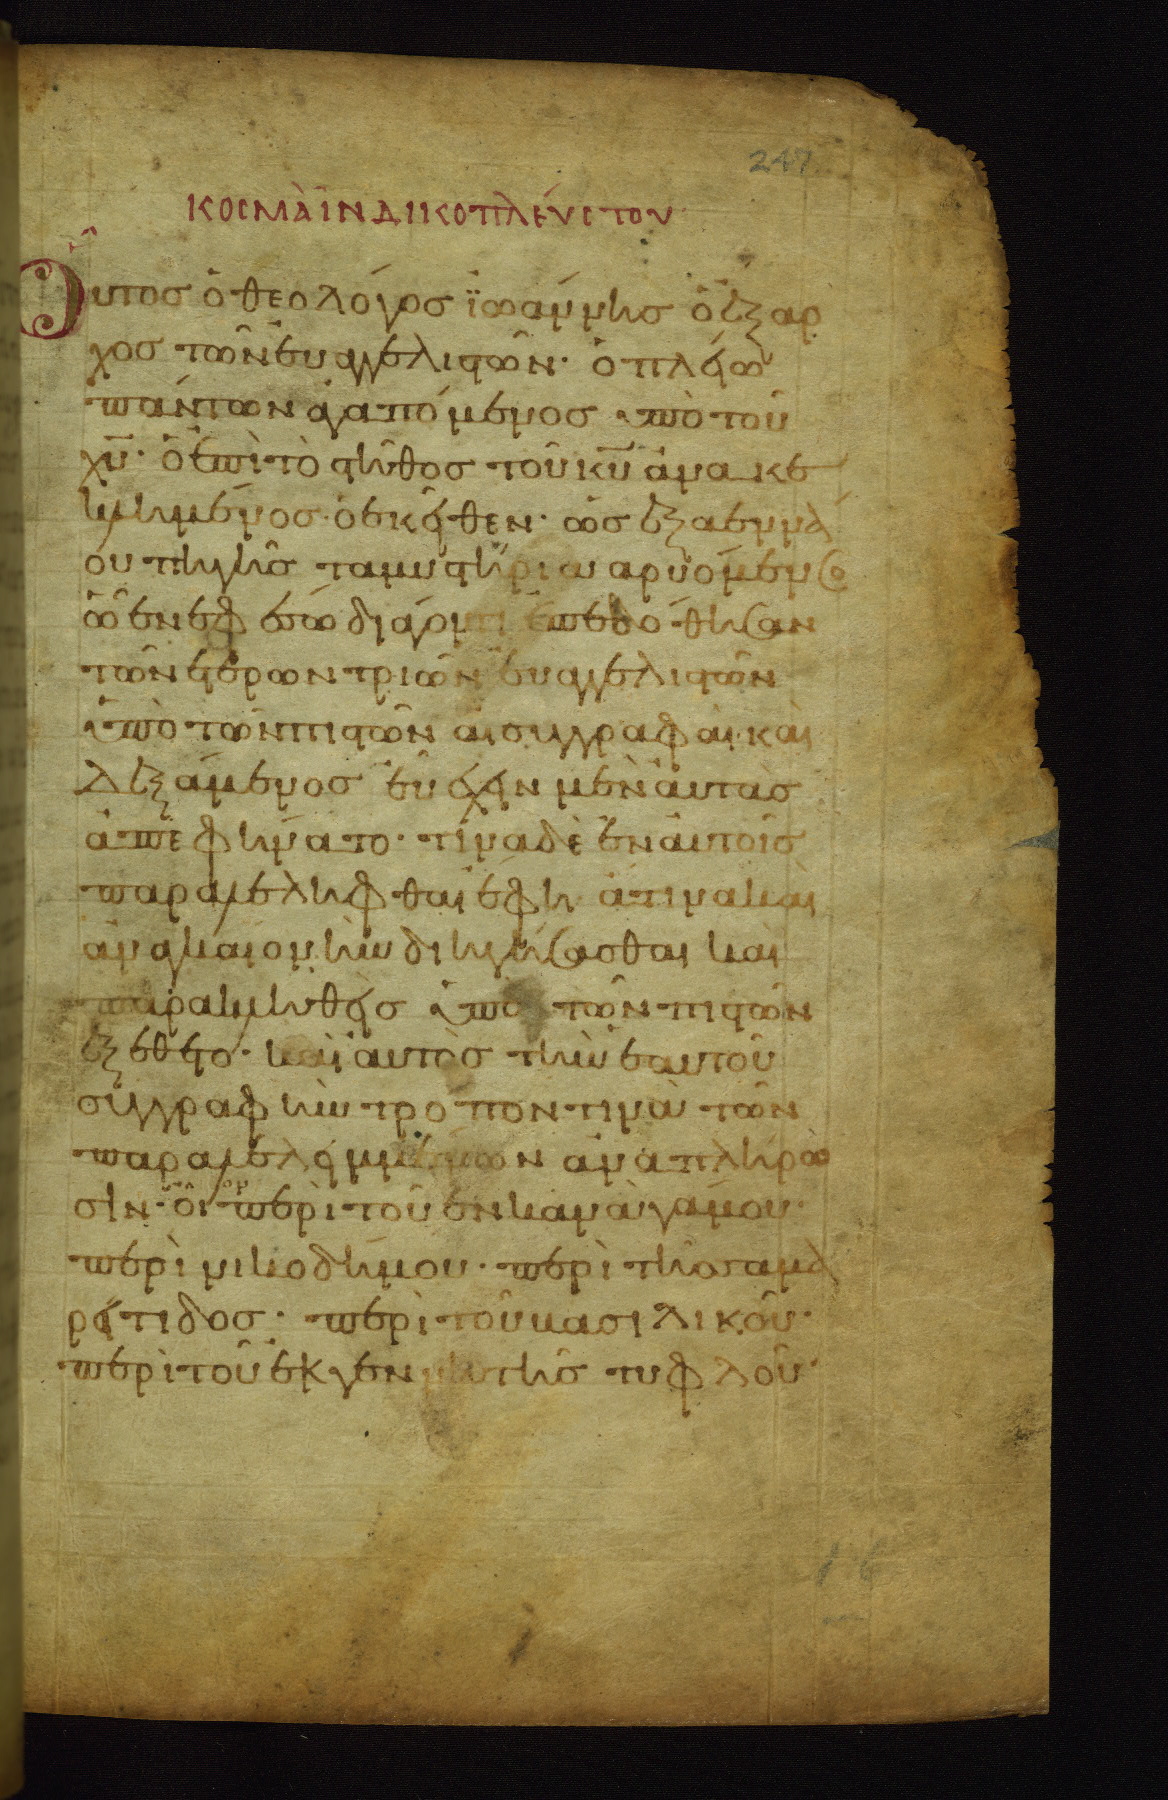 247
ΚΟϹΜᾶ ἸΝΔΙΚΟΠΛΕΎϹΤΟΥ
Οὗτος ὁ θεολόγος ϊωάννης ὁ ἔξαρ
χος τῶν εὐαγγελιστῶν· ὁ πλείω
πάντων ἀγαπόμενος ὑπὸ τοῦ
χυ̅· ὁ ἐπὶ τὸ στῆθος τοῦ κυ̅ ἀνακε
κλημένος ὁ ἐκεῖθεν· ὡς ἐξ ἀεννά
ου πηγῆς τὰ μυστήρια ἀρυόμενος
ὧ ἐν ἐφέσω διάγοντι ἐπεδόθησαν
τῶν ἑτέρων τριῶν εὐαγγελιστῶν
ὑπὸ τῶν πιστῶν αἱ συγγραφαὶ· καὶ
δεξάμενος εὖ ἔχειν μὲν αὐτὰς
ἀπεφήνατο· τίνα δὲ ἐν αὐτοῖς
παραλελῆφθαι ἔφη ἅτινα καὶ
ἀναγκαῖον ἦν διηγήσασθαι καὶ
παρακληθεὶς ὑπὸ τῶν πιστῶν
ἐξέθετο· καὶ αὐτὸς τὴν ἑαυτοῦ
συγγραφὴν τρόπον τινὰ τῶν
παραλελειμμένων ἀναπλήρω
σιν· οἷον περὶ τοῦ ἐν κανὰ γάμου·
περὶ νικοδήμου· περὶ τῆς σαμα
ρείτιδος· περὶ τοῦ βασιλικοῦ·
περὶ τοῦ ἐκ γεννητῆς τυφλοῦ·